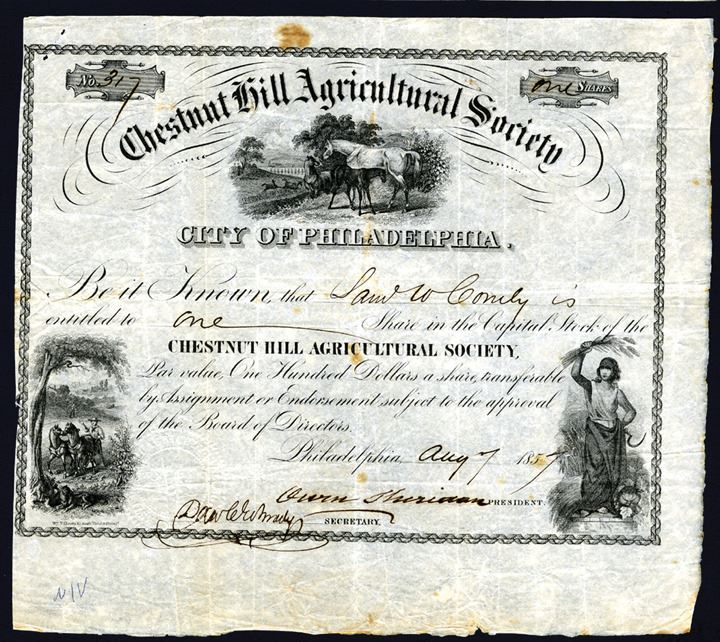 No. 317
one SHARES
Chestnut Hill Agricultural Society
CITY OF PHILADELPHIA.
Be it Known, that Saml W Comly is
entitled to one Share in the Capital Stock of the
CHESTNUT HILL AGRICULTURAL SOCIETY,
Par value, One Hundred Dollars a share, transferable
by Assignment or Endorsement subject to the approval
of the Board of Directors.
Philadelphia, Aug 7 1857
Owen Sheridan PRESIDENT.
SECRETARY.
N/V